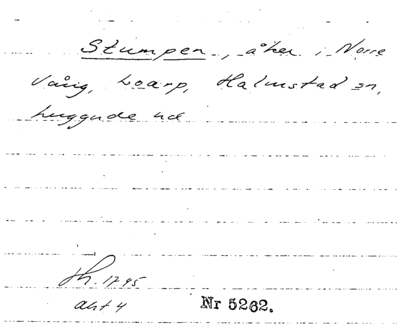 Stumpen, åker i Norre
Vång, Loarp, Halmstad sn,
Luggude hd
Hh. 1795
akt 4
Nr 5262.